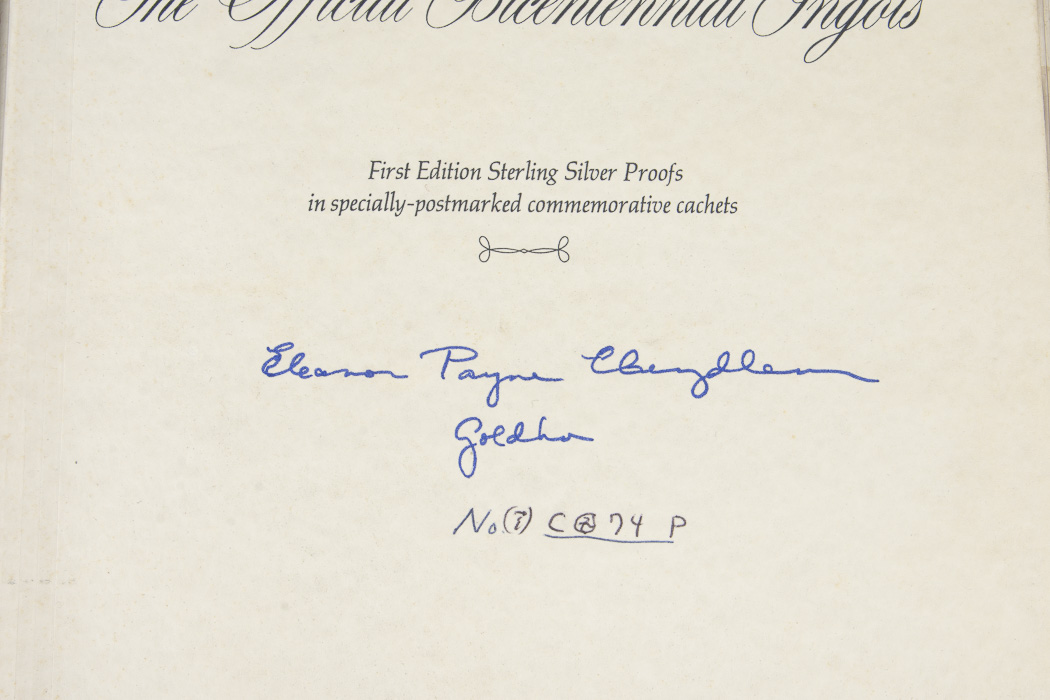 The Official Bicentennial Ingots
First Edition Sterling Silver Proofs
in specially-postmarked commemorative cachets
Eleanor Payne
No. 74 P